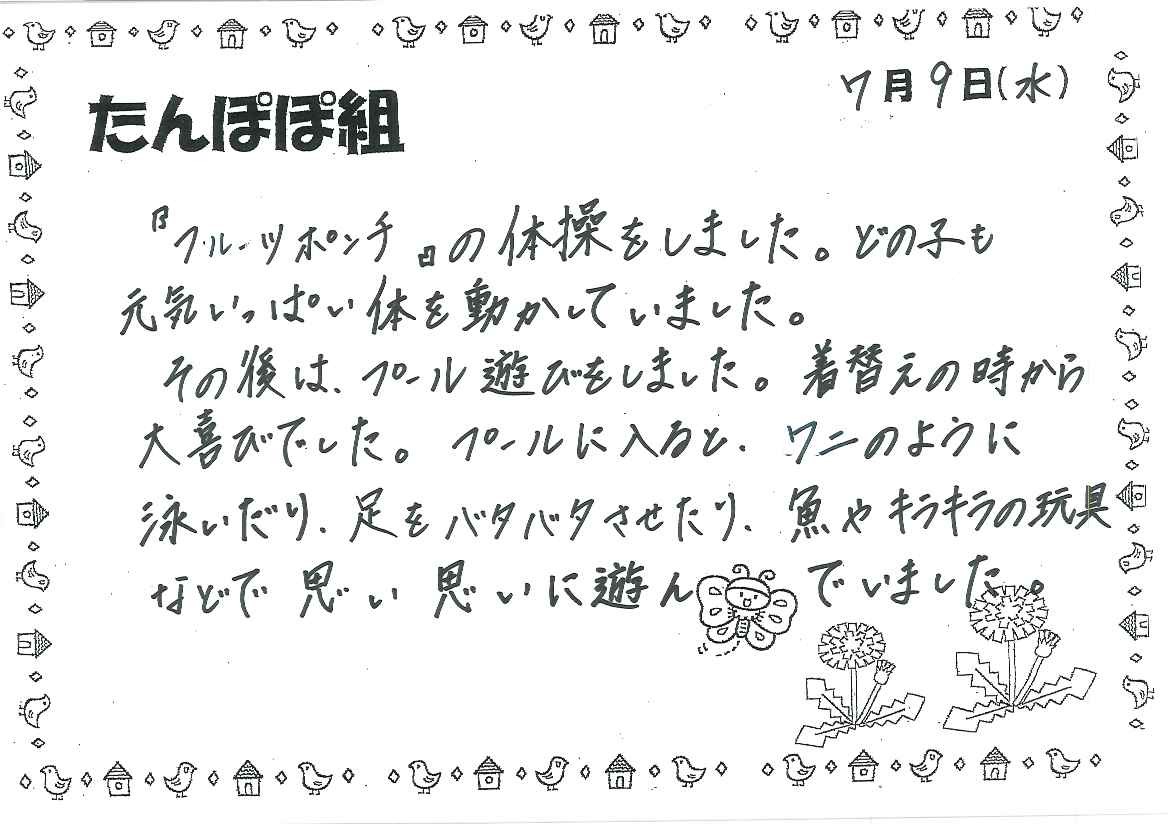 7月9日(水)
たんぽぽ組
『フルーツポンチ』の体操をしました。どの子も
元気いっぱい体を動かしていました。
その後は、プール遊びをしました。着替えの時から
大喜びでした。プールに入ると、ワニのように
泳いだり、足をバタバタさせたり、魚やキラキラの玩具
などで思い思いに遊んでいました。